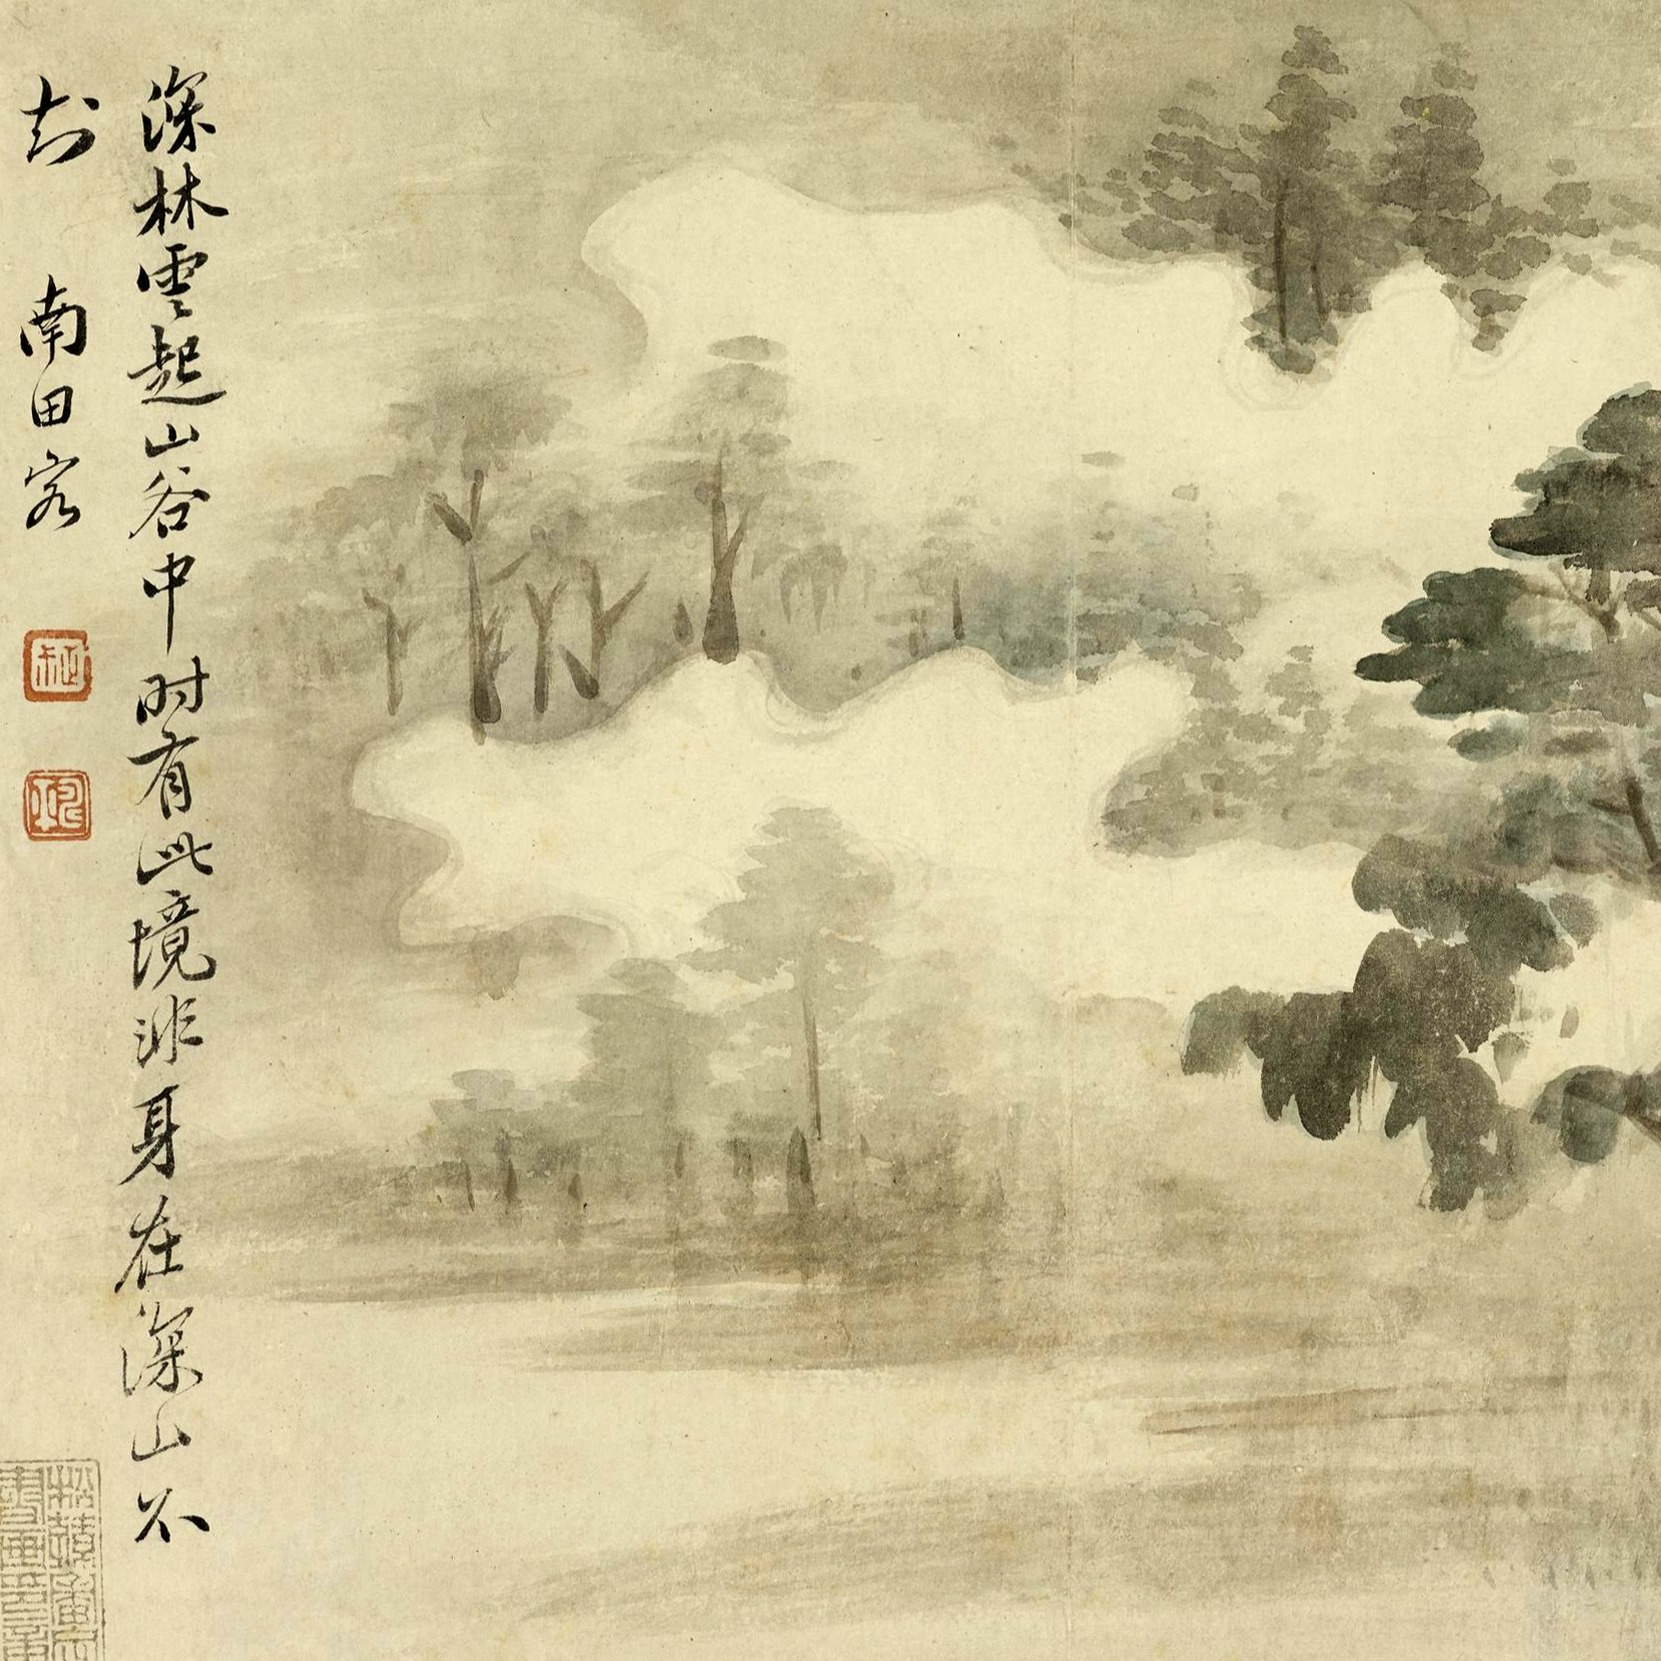 深林雲起山谷中时有此境非身在深山不
知 南田客